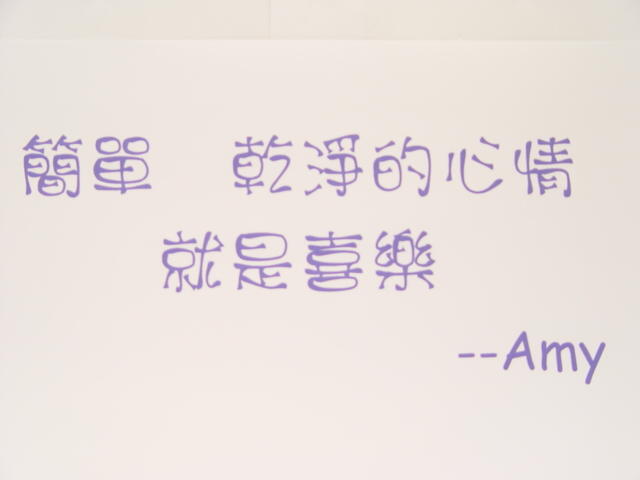 簡單　乾淨的心情
就是喜樂
--Amy